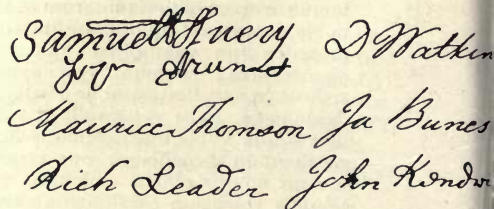 Samuell Avery D Watkin
Maurice Thomson Ja Bunes
Rich Leader John Kendr